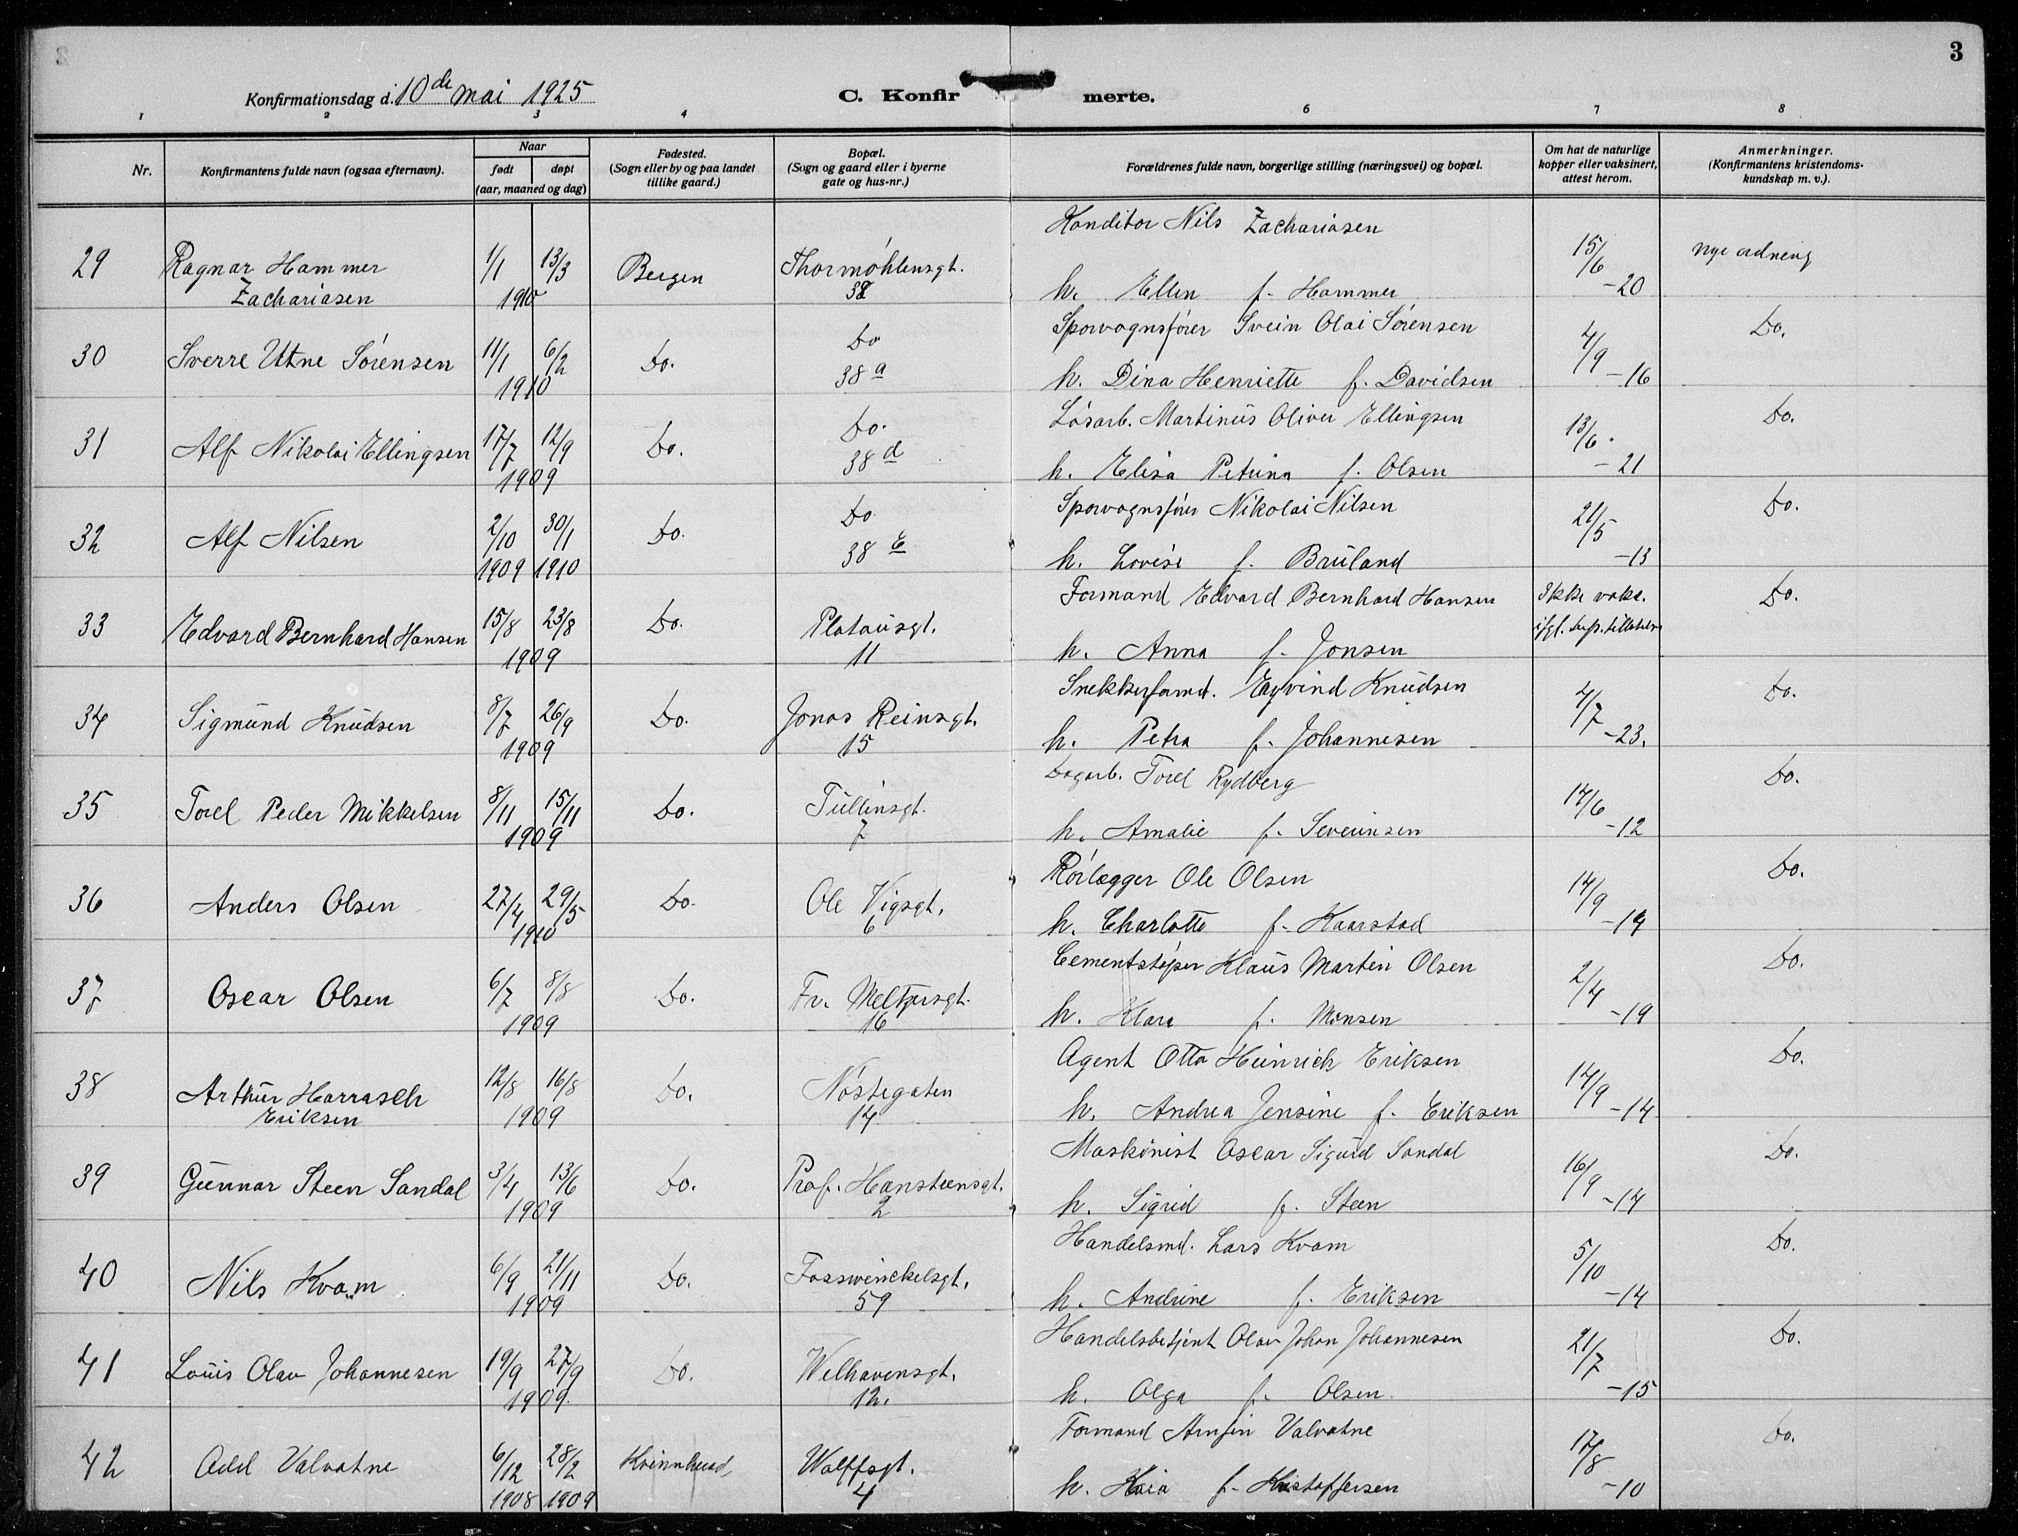 3
Konfirmationsdag d. 10de mai 1925
C. Konfirmerte.
1 2 3 4 6 7 8
Nr.
Konfirmantens fulde navn (ogsaa efternavn).
Naar
født døpt
(aar, maaned og dag)
Fødested.
(Sogn eller by og paa landet
tillike gaard.)
Bopæl.
(Sogn og gaard eller i byerne
gate og hus-nr.)
Forældrenes fulde navn, borgerlige stilling (næringsvei) og bopæl.
Om hat de naturlige
kopper eller vaksinert,
attest herom.
Anmerkninger.
(Konfirmantens kristendoms-
kundskap m. v.).
Konditor Nils Zachariasen
29 Ragnar Hammer 1/1 13/3 Bergen Thormøhlensgt. 15/6 nye ordning
Zachariasen 1910 38 h. Ellen f. Hammer -20
Sporvognsfører Svein Olai Sørensen
30 Sverre Utne Sørensen 11/1 6/2 Do. Do 4/9 Do.
1910 38 a h. Dina Henriette f. Davidsen -16
Løsarb. Martinus Oliver Ellingsen
31 Alf Nikolai Ellingsen 17/7 12/9 Do. Do. 13/6 Do.
1909 38 d h. Elisa Petrina f. Olsen -21
Sporvognsfører Nikolai Nilsen
32 Alf Nilsen 2/10 30/1 Do. Do. 21/5 Do.
1909 1910 38 E h. Lovise f. Bruland -13
Formand Edvard Bernhard Hansen Ikke vaks.
33 Edvard Bernhard Hansen 15/8 23/8 Do. Platousgt. ifgl. Do.
1909 11 h. Anna f. Jonsen
Eyvind Knudsen
34 Sigmund Knudsen 8/7 26/9 Do. Jonas Reinsgt. 4/7 Do.
1909 15 h. Petra f. Johannesen -23.
Dagarb. Torel Rydberg
35 Torel Peder Mikkelsen 8/11 15/11 Do. Tullinsgt. 14/6 Do.
1909 7 h. Amalie f. Severinsen -12
Rørlægger Ole Olsen
36 Anders Olsen 27/4 29/5 Do. Ole Vigsgt. 14/9 Do.
1910 6 h. Charlotte f. Kaarstad -14
Cementstøper Klaus Martin Olsen
37 Oscar Olsen 6/7 8/8 Do. Fr. Meltzersgt. 2/4 Do.
1909 16 h. Klara f. Monsen -19
Agent Otto Heinrich Eriksen
38 Arthur Harrasch 12/8 16/8 Do. Nøstegaten 14/9 Do.
Eriksen 1909 14 h. Andrea Jensine f. Eriksen -14
Maskinist Oscar Sigurd Sandal
39 Gunnar Steen Sandal 3/4 13/6 Do. Prof. Hansteensgt. 16/9 Do.
1909 2 h. Sigrid f. Steen -14
Handelsmd. Lars Kvam
40 Nils Kvam 6/9 21/11 Do. Fosswinckelsgt. 5/10 Do.
1909 59 h. Andrine f. Eriksen -14
Handelsbetjent Olav Johan Johannesen
41 Louis Olav Johannesen 19/9 27/9 Do. Welhavensgt. 21/7 Do.
1909. 12. h. Olga f. Olsen -15
Formand Arnfin Valvatne
42 Odd Valvatne 6/12 28/2 Kvinnherad Wolffsgt. 17/8 Do.
1908 1909 4 h. Kaia f. Kristoffersen -10